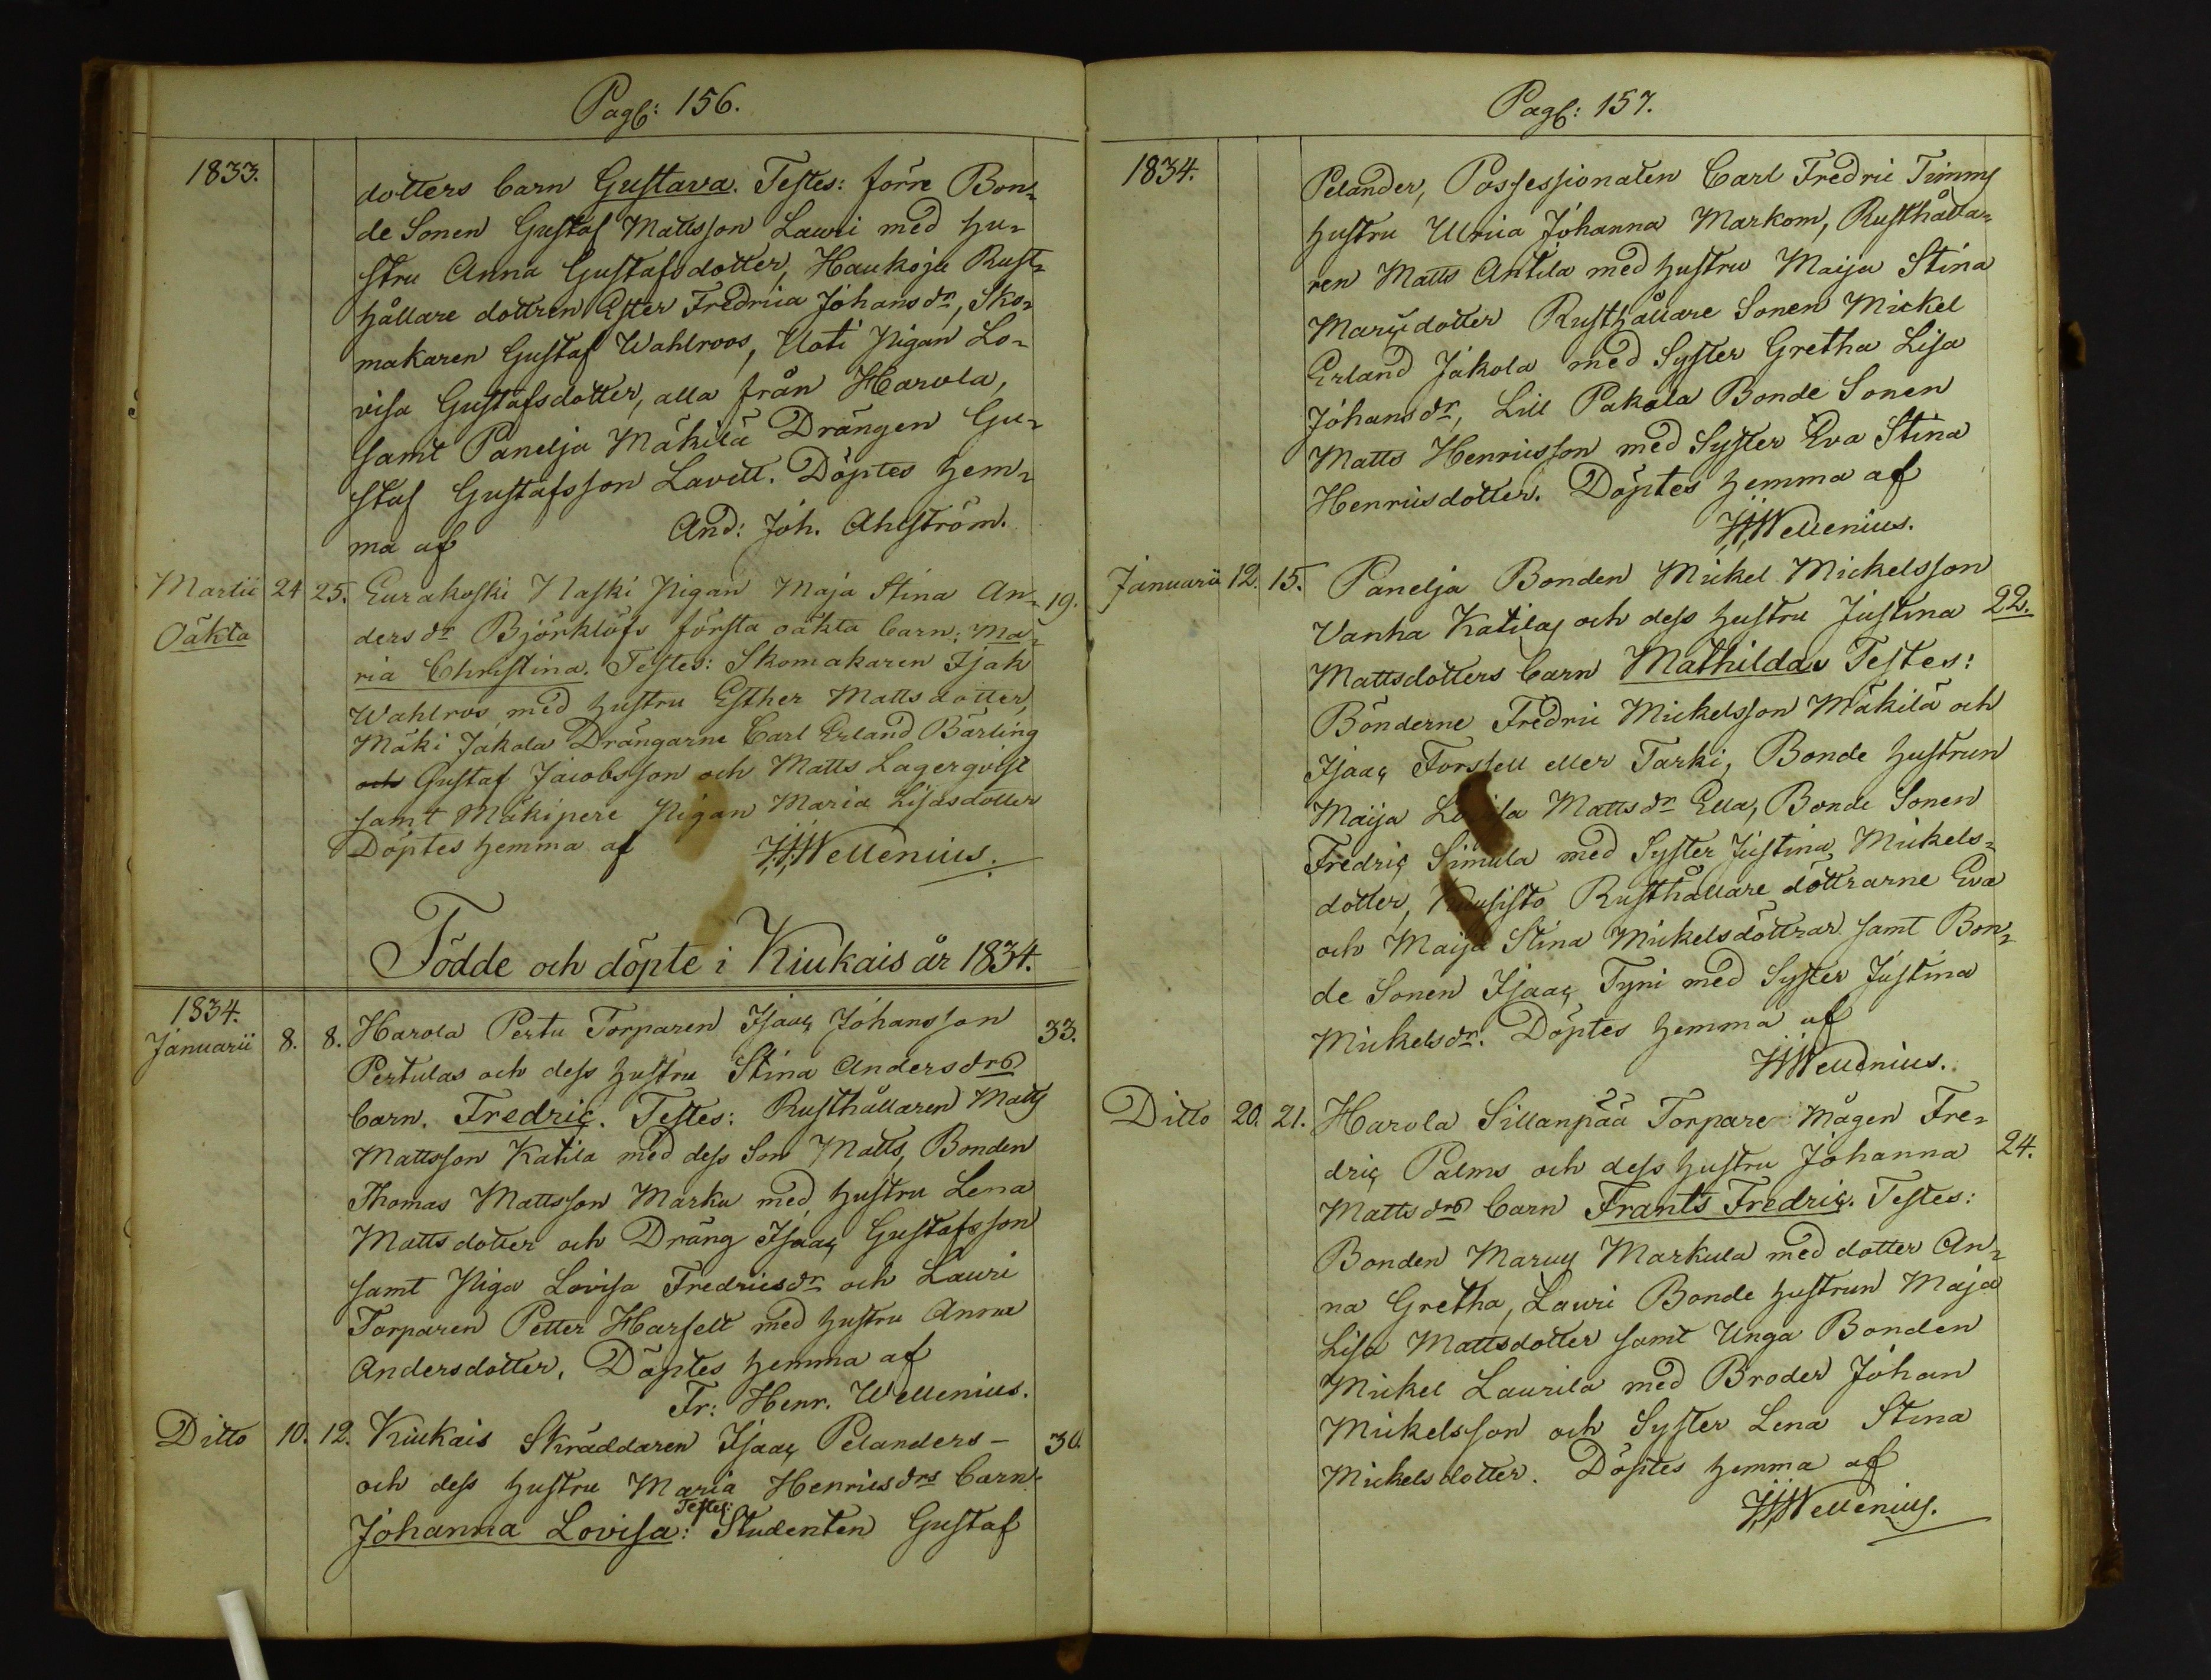 Pag: 156.
1833.
dotters barn Gustava. Testes: förre Bon-
de Sonen Gustaf Mattsson Lauri med hu-
stru Anna Gustafsdotter, Haukoja Rust-
hållare dottren Ester Fredrica Johansdr, Sko-
makaren Gustaf Wahlroos, Uoti Pigan Lo-
visa Gustafsdotter, alla från Harola,
samt Panelja Mäkilä Drängen Gu-
staf Gustafsson Lavell. Döptes hem-
ma af And: Joh. Ahlström.
Martii 24 25. Eurakoski Naski Pigan Maja Stina An- 19.
Oäkta ders dr Björklöfs första oäkta barn: Ma-
ria Christina. Testes: Skomakaren Isak
Wahlroos med hustru Esther Mattsdotter,
Mäki Jakola Drängarne Carl Erland Bärling
och Gustaf Jacobsson och Matts Lagerqvist
samt Mäkipere Pigan Maria Lisasdotter
Döptes hemma af F.H.Wellenius.
Födde och döpte i Kiukais år 1834.
1834.
Januarii 8. 8. Harola Pertu Torparen Isaac Johansson 33.
Pertulas och dess hustru Stina Andersdrs
barn. Fredric. Testes: Rusthållaren Matts
Mattsson Katila med dess Son Matts, Bonden
Thomas Mattsson Marku med hustru Lena
Mattsdotter och Dräng Isaac Gustafsson
samt Piga Lovisa Fredricsdr och Lauri
Torparen Petter Harfelt med hustru Anna
Andersdotter. Döptes hemma af
Fr: Henr. Wellenius.
Ditto 10. 12. Kiukais Skräddaren Isaac Pelanders- 30.
och dess hustru Maria Henricsdrs barn
Testes:
Johanna Lovisa: Studenten Gustaf
Pag: 157.
1834.
Pelander, Possessionaten Carl Fredric Timms
hustru Ulrica Johanna Markom, Rusthålla-
ren Matts Antila med hustru Maija Stina
Marcidotter Rusthållare Sonen Mickel
Erland Jakola med Syster Gretha Lisa
Johansdr, Lill Pakola Bonde Sonen
Matts Henricsson med Syster Eva Stina
Henricsdotter. Döptes hemma af
F.H.Wellenius.
Januarii 12. 15. Panelja Bonden Mickel Mickelsson
Vanha Katilas och dess hustru Justina 22.
Mattsdotters barn Mathilda. Testes:
Bönderne Fredric Mickelsson Mäkilä och
Isaac Forssell eller Tarki, Bonde hustrun
Maija Lovisa Mattsdr Ella, Bonde Sonen
Fredric Simula med Syster Justina Mickels-
dotter, Kuusisto Rusthållare döttrarne Eva
och Maija Stina Mickelsdöttrar samt Bon-
de Sonen Isaac Tyni med Syster Justina
Mickelsdr. Döptes hemma af
F.H.Wellenius.
Ditto 20. 21. Harola Sillanpää Torpare Mågen Fre-
dric Palms och dess hustru Johanna 24.
Mattsdrs barn Frants Fredric. Testes:
Bonden Marcus Markula med dotter An-
na Gretha, Lauri Bonde hustrun Maja
Lisa Mattsdotter samt Unga Bonden
Mickel Laurila med Broder Johan
Mickelsson och Syster Lena Stina
Mickelsdotter. Döptes hemma af
F.H.Wellenius.